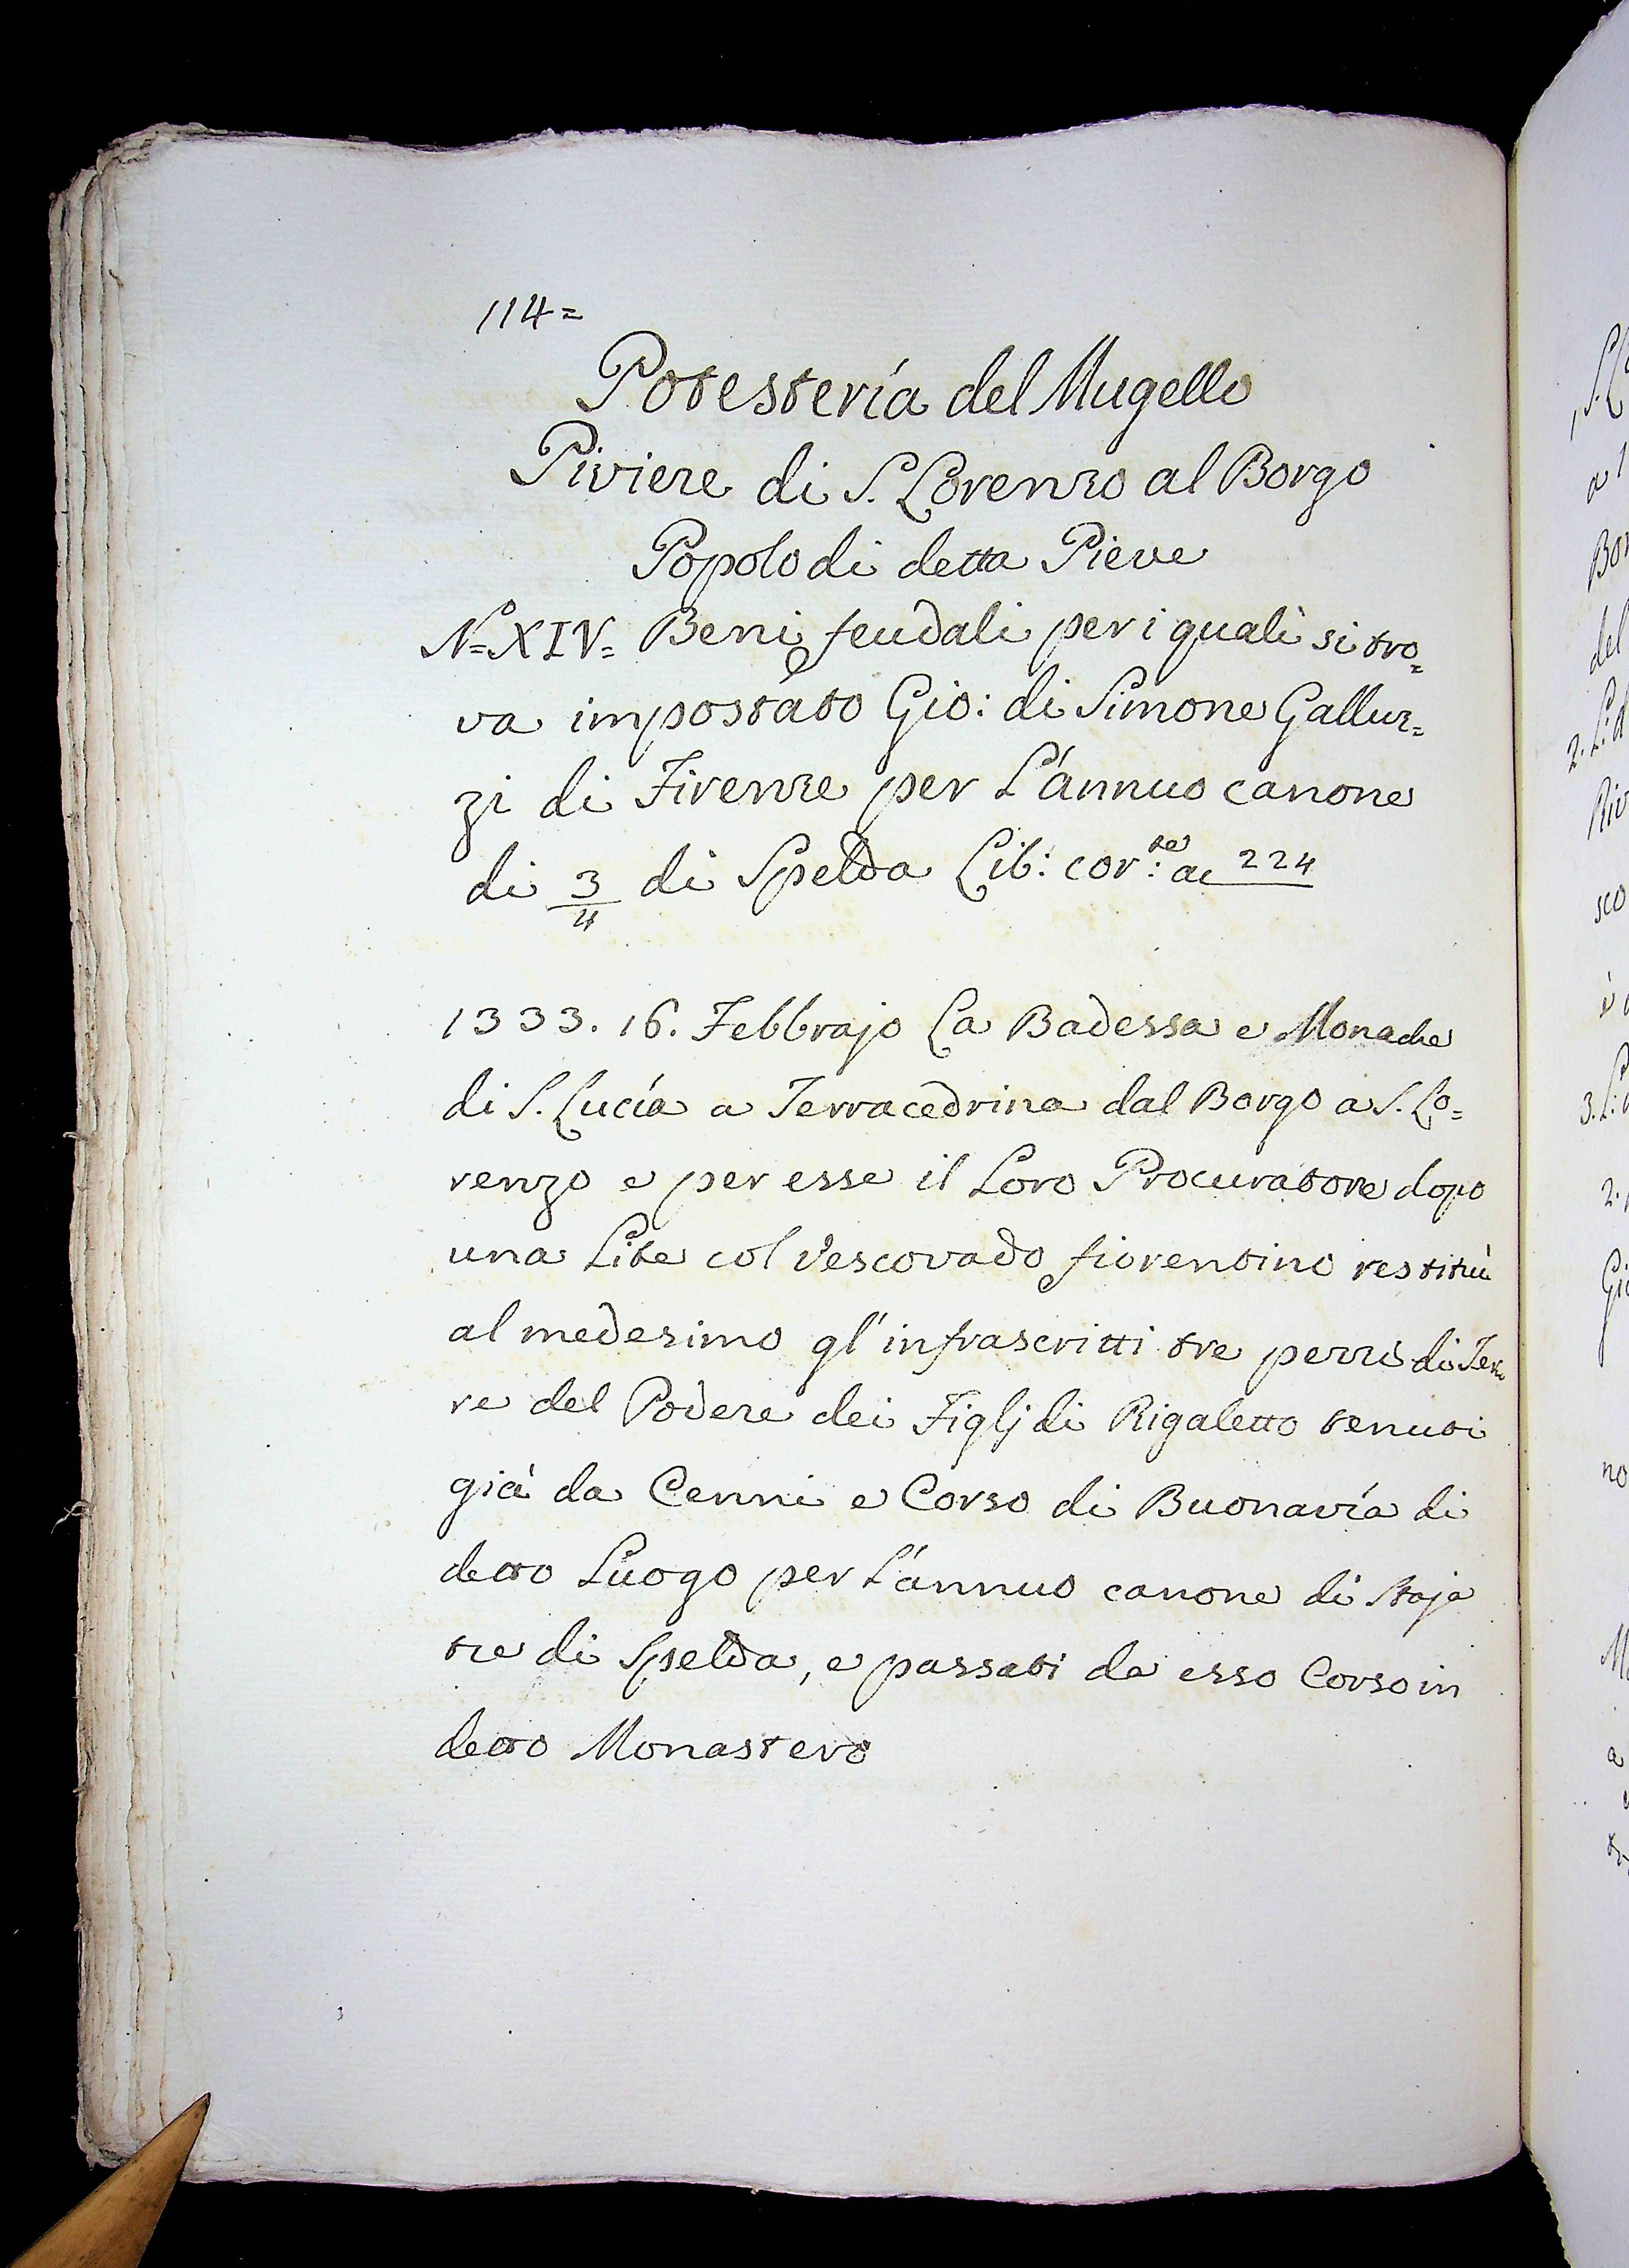 114=
Potestería del Mugello
Piviere di S. Lorenzo al Borgo
Popolo di detta Pieve
N=XIV= Beni feudali per i quali si tro=
va impostato Gio: di Simone Galluz=
zi di Firenze per L'annuo canone
di 3/4 di Spelda Lib: cor:te a 224
1333. 16. Febbrajo La Badessa e Monache
di S. Lucía a Terracedrina dal Borgo a S. Lo=
renzo e per esse il Loro Procuratore dopo
una Lite col Vescovado fiorentino restituì
al medesimo gl'infrascritti tre pezzi di Ter=
re del Podere dei Figlj di Rigaletto tenuti
già da Cenni e Corso di Buonavía di
detto Luogo per L'annuo canone di Staja
tre di Spelda, e passati da esso Corso in
detto Monastero